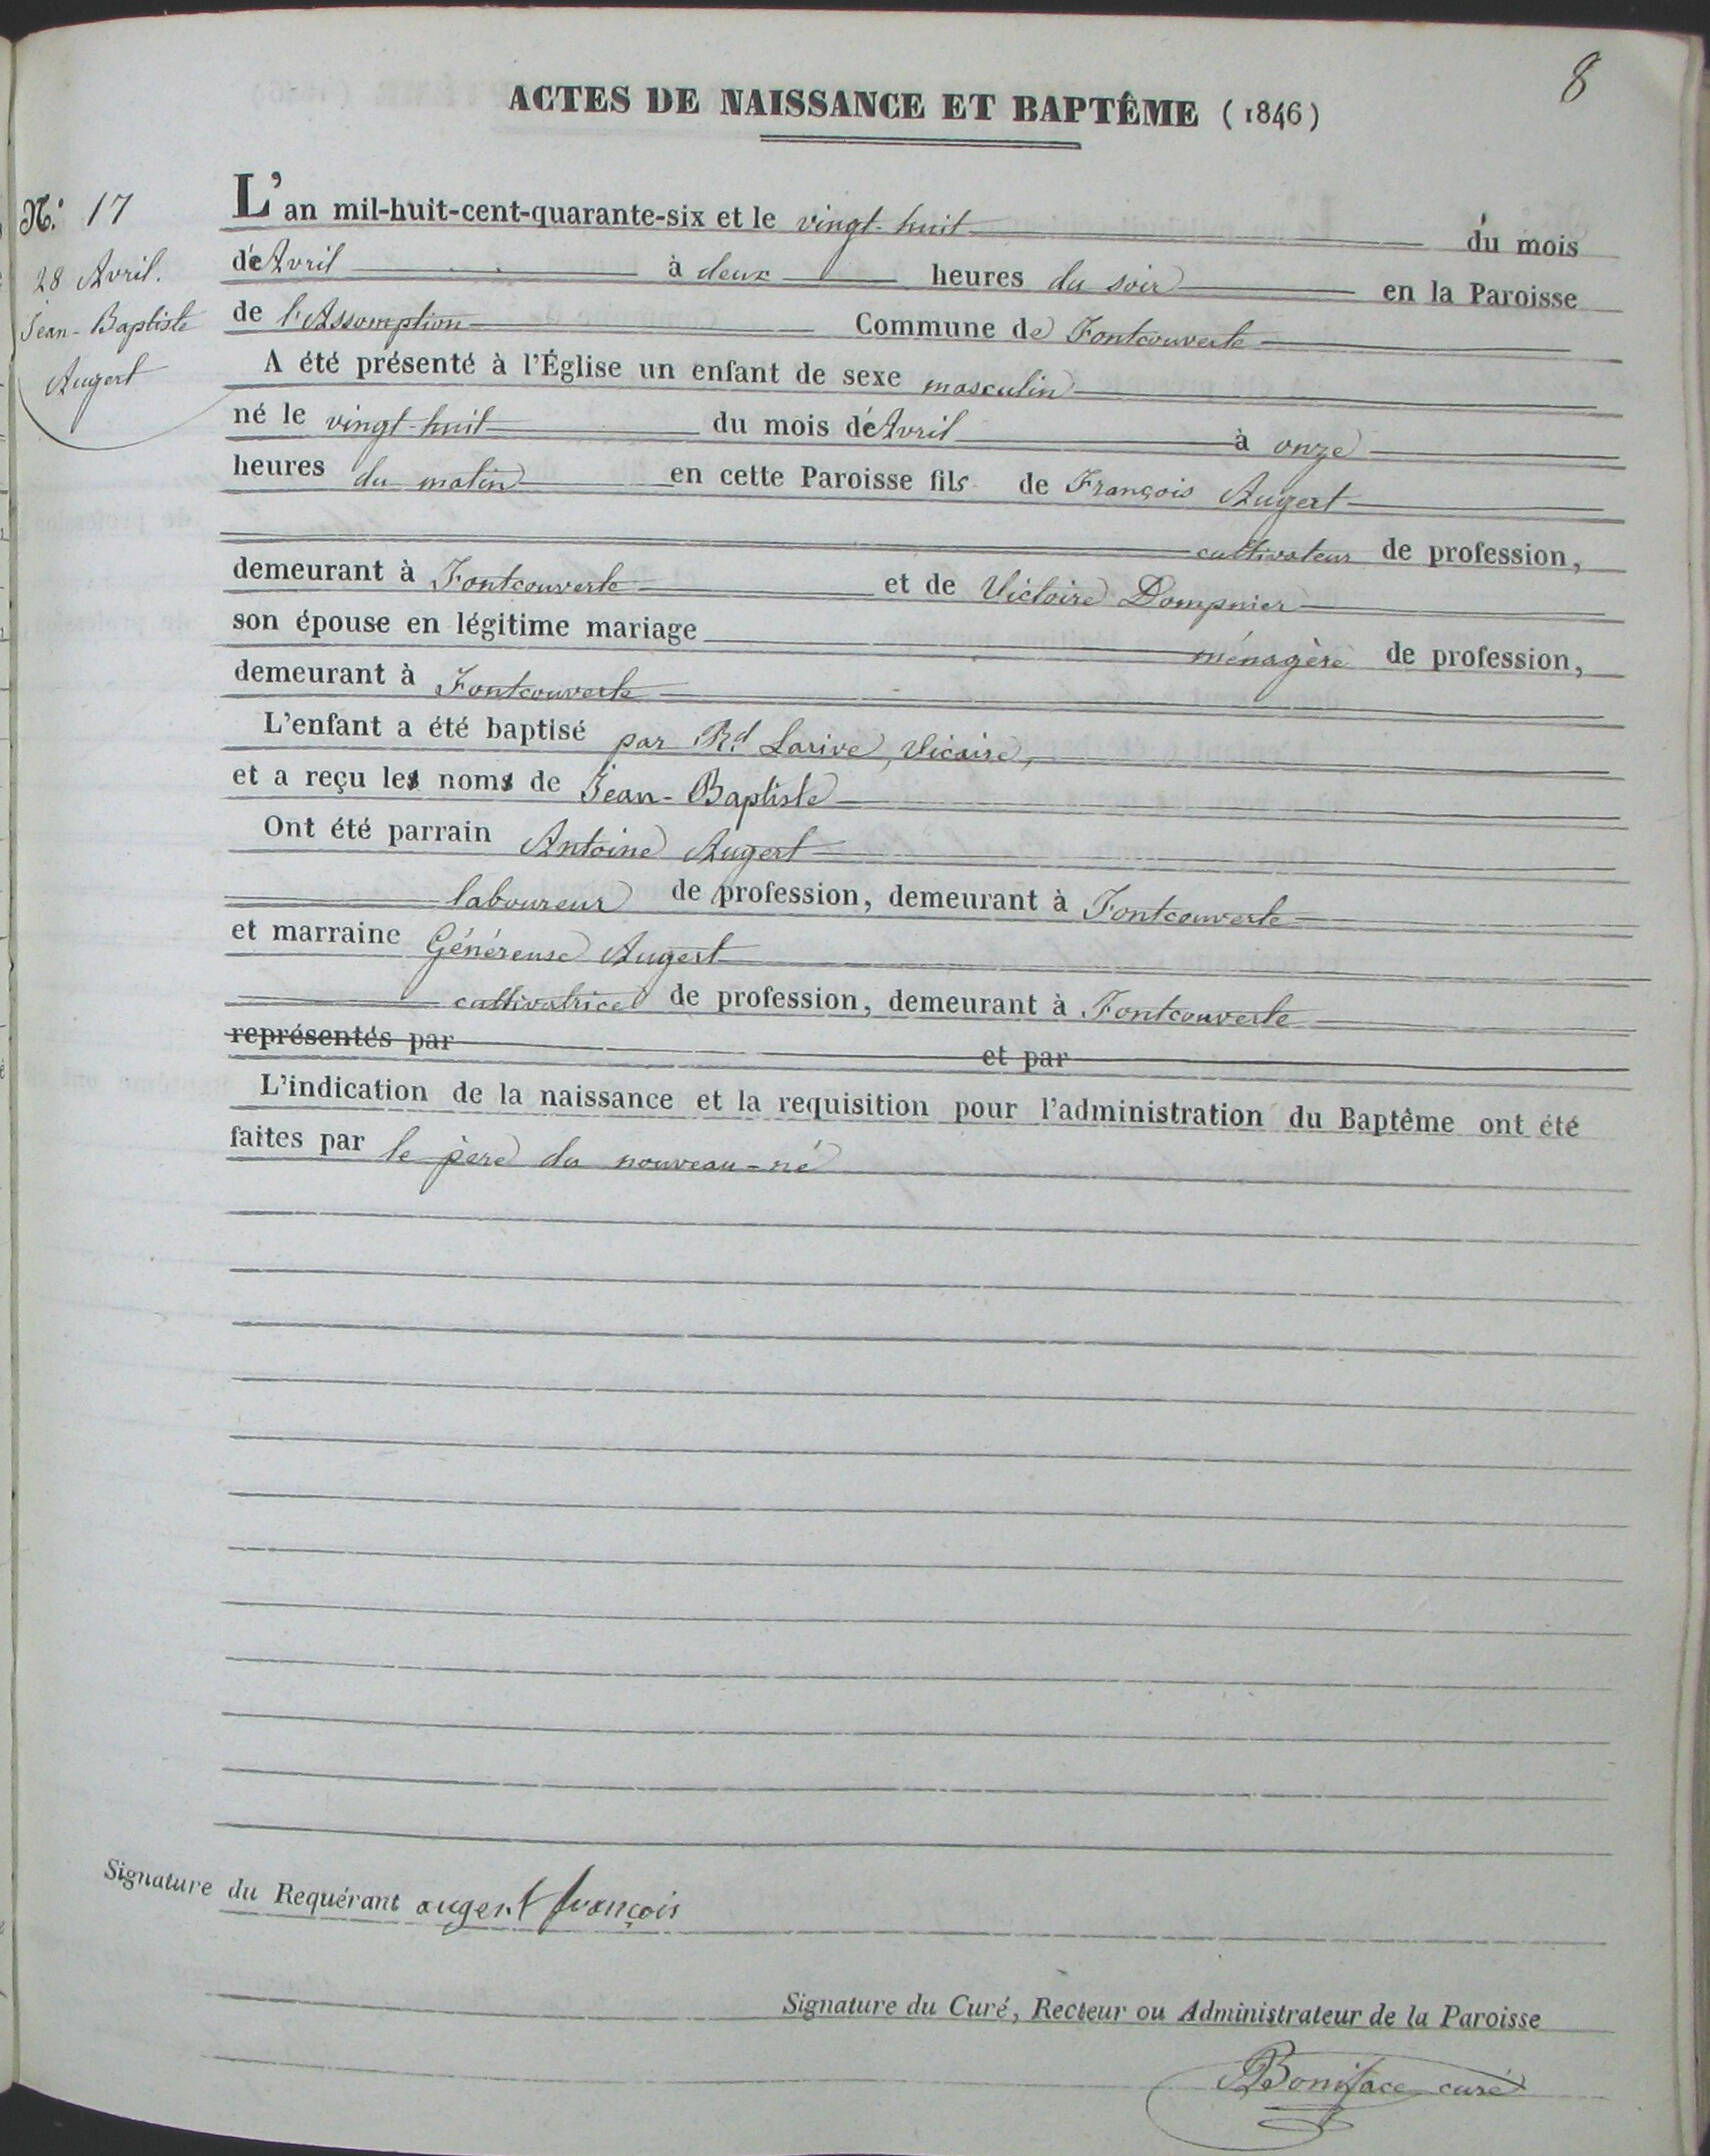 8
ACTES DE NAISSANCE ET BAPTÊME (1846)
N.° 17
28 Avril.
Jean-Baptiste
Augert
L'an mil-huit-cent-quarante-six et le vingt-huit du mois
d'Avril à deux heures du soir en la Paroisse
de l'Assomption Commune de Fontcouverte
A été présenté à l'Église un enfant de sexe masculin
né le vingt-huit du mois d'Avril à onze
heures du matin en cette Paroisse fils de François Augert
cultivateur de profession,
demeurant à Fontcouverte et de Victoire Dompnier
son épouse en légitime mariage ménagère de profession,
demeurant à Fontcouverte
L'enfant a été baptisé par Rd Larive, Vicaire,
et a reçu les noms de Jean-Baptiste
Ont été parrain Antoine Augert
laboureur de profession, demeurant à Fontcouverte
et marraine Généreuse Augert
cultivatrice de profession, demeurant à Fontcouverte
représentés par et par
L'indication de la naissance et la requisition pour l'administration du Baptême ont été
faites par le père du nouveau-né
Signature du Requérant augert françois
Signature du Curé, Recteur ou Administrateur de la Paroisse
Boniface curé